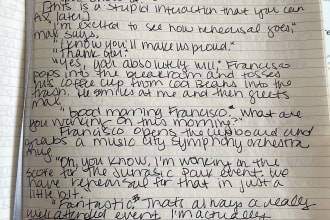 [This is a stupid interaction that you can
as later]
"I'm excited to see how rehearsal goes,"
Max says.
"I know you'll make us proud."
"Thank you."
"Yes, you absolutely will," Francisco
pops into the breakroom and tosses
his coffee cup from Cool Beans into the
trash. He smiles at me and then greets
Max.
"Good morning Francisco. What are
you working on this morning?"
Francisco opens the cupboard and
grabs a music city symphony orchestra
mug.
"Oh, you know, I'm working on the
score for the Jurassic Park event. We
have rehearsal for that in just a
little bit."
"Fantastic. That's always a really
well attended event. I'm actually